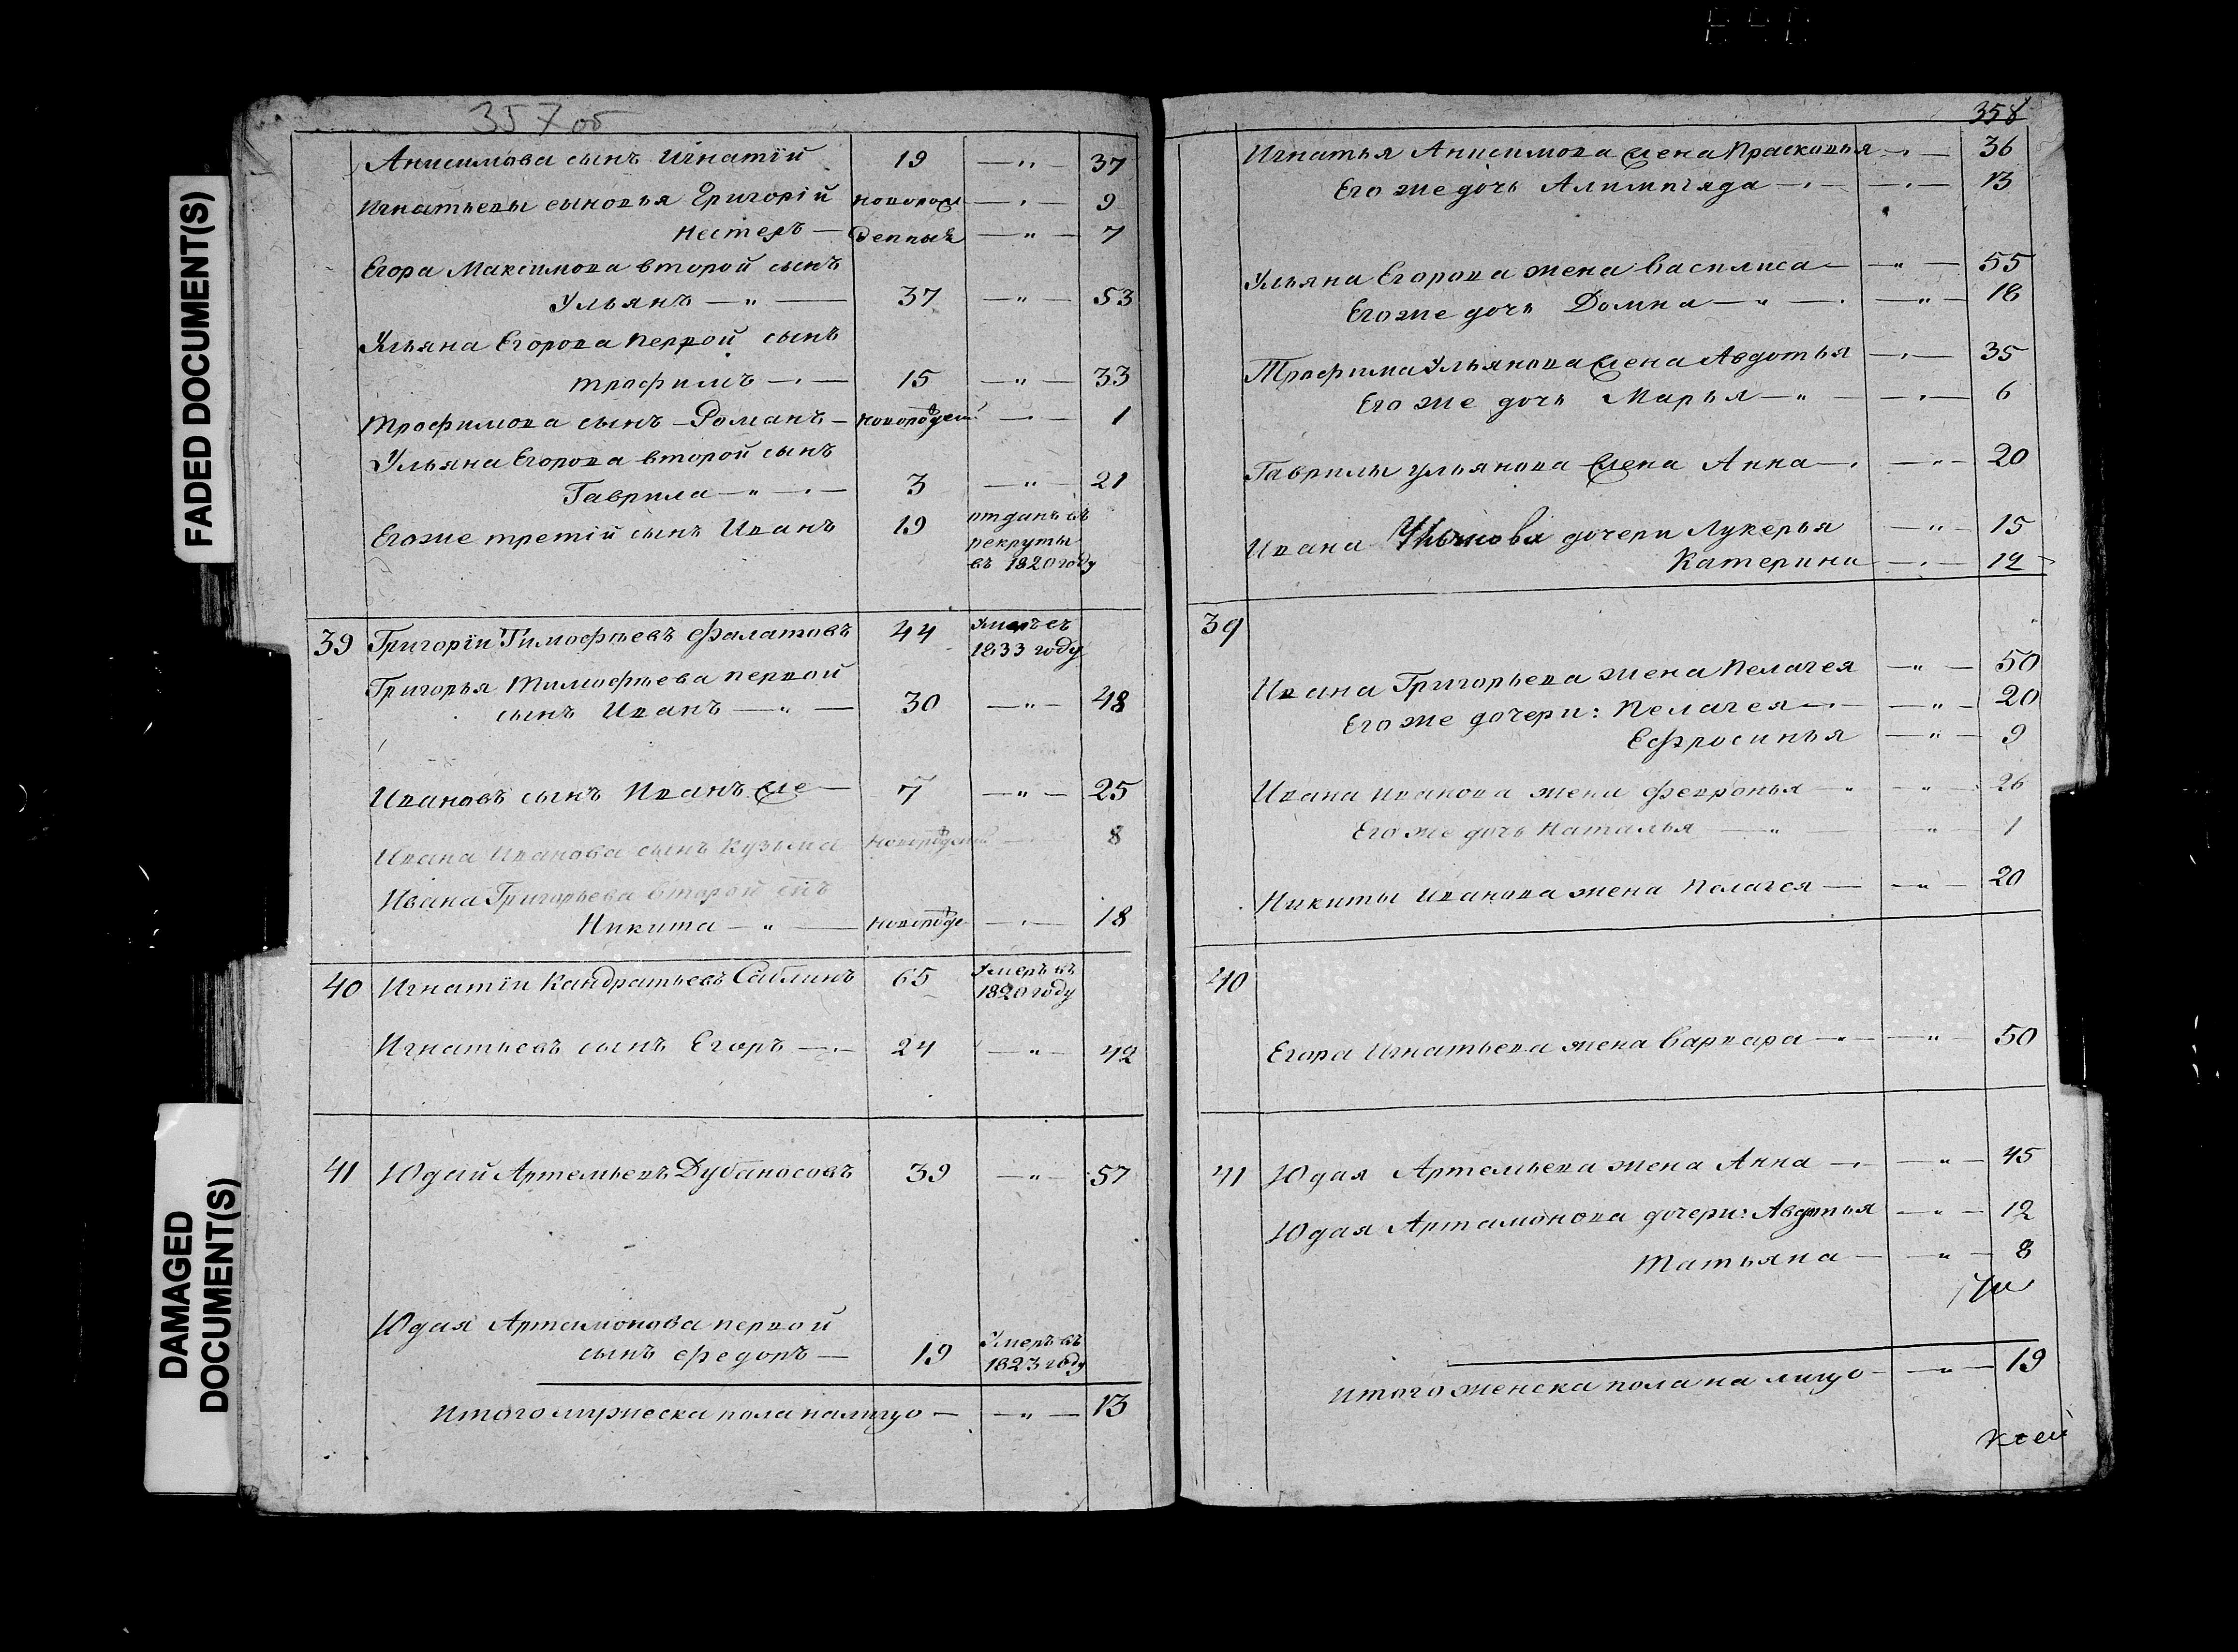 FADED DOCUMENT(S)
DAMAGED
DOCUMENT(S)
357об
Анисимова сынъ Игнатій 19 —„— 37
Игнатьевы сыновья Григорій новорож — 9
Нестеръ — денныя —„— 7
Егора Максимова второй сынъ
Ульянъ —„— 37 —„— 53
Ульяна Егорова первой сынъ
Трофимъ — 15 —„— 33
Трофимова сынъ — Романъ — новорожден — 1
Ульяна Егорова второй сынъ
Гаврила —„— 3 —„— 21
Егоже третій сынъ Иванъ 19 отданъ въ
рекруты
въ 1820 году
39 Григорій Тимофѣевъ Фалатовъ 44 Умеръ въ
1833 году
Григорья Тимофѣева первой
сынъ Иванъ —„— 30 —„— 48
Ивановъ сынъ Иванъ же — 7 —„— 25
Ивана Иванова сынъ Кузьма новорожденной — 8
Ивана Григорьева второй сынъ
Никита —„— новорожде — 18
40 Игнатій Кандратьевъ Саблинъ 65 Умеръ въ
1820 году
Игнатьевъ сынъ Егоръ — 24 —„— 42
41 Юдай Артемьевъ Дубаносовъ 39 —„— 57
Юдая Артамонова первой
сынъ Федоръ — 19 Умеръ въ
1823 году
Итого мужеска пола налицо — —„— 13
358
Игнатья Анисимова жена Прасковья — 36
Его же дочь Алимпіяда — — 13
Ульяна Егорова жена Василиса — —„— 55
Егоже дочь Домна —„— —„— 18
Трофима Ульянова жена Авдотья — 35
Его же дочь Марья —„— — 6
Гаврилы Ульянова жена Анна — —„— 20
Ивана Ульянова дочери Лукерья —„— 15
Катерина — 12
39
Ивана Григорьева жена Пелагея —„— 50
Его же дочери: Пелагея — —„— 20
Ефросинья —„— 9
Ивана Иванова жена Февронья —„— 26
Его же дочь Наталья —„— —„— 1
Никиты Иванова жена Пелагея — —„— 20
40
Егора Игнатьева жена Варвара — —„— 50
41 Юдая Артемьева жена Анна — —„— 45
Юдая Артамонова дочери: Авдотья —„— 12
Татьяна — —„— 8
Итого женска пола на лицо — —„— 19